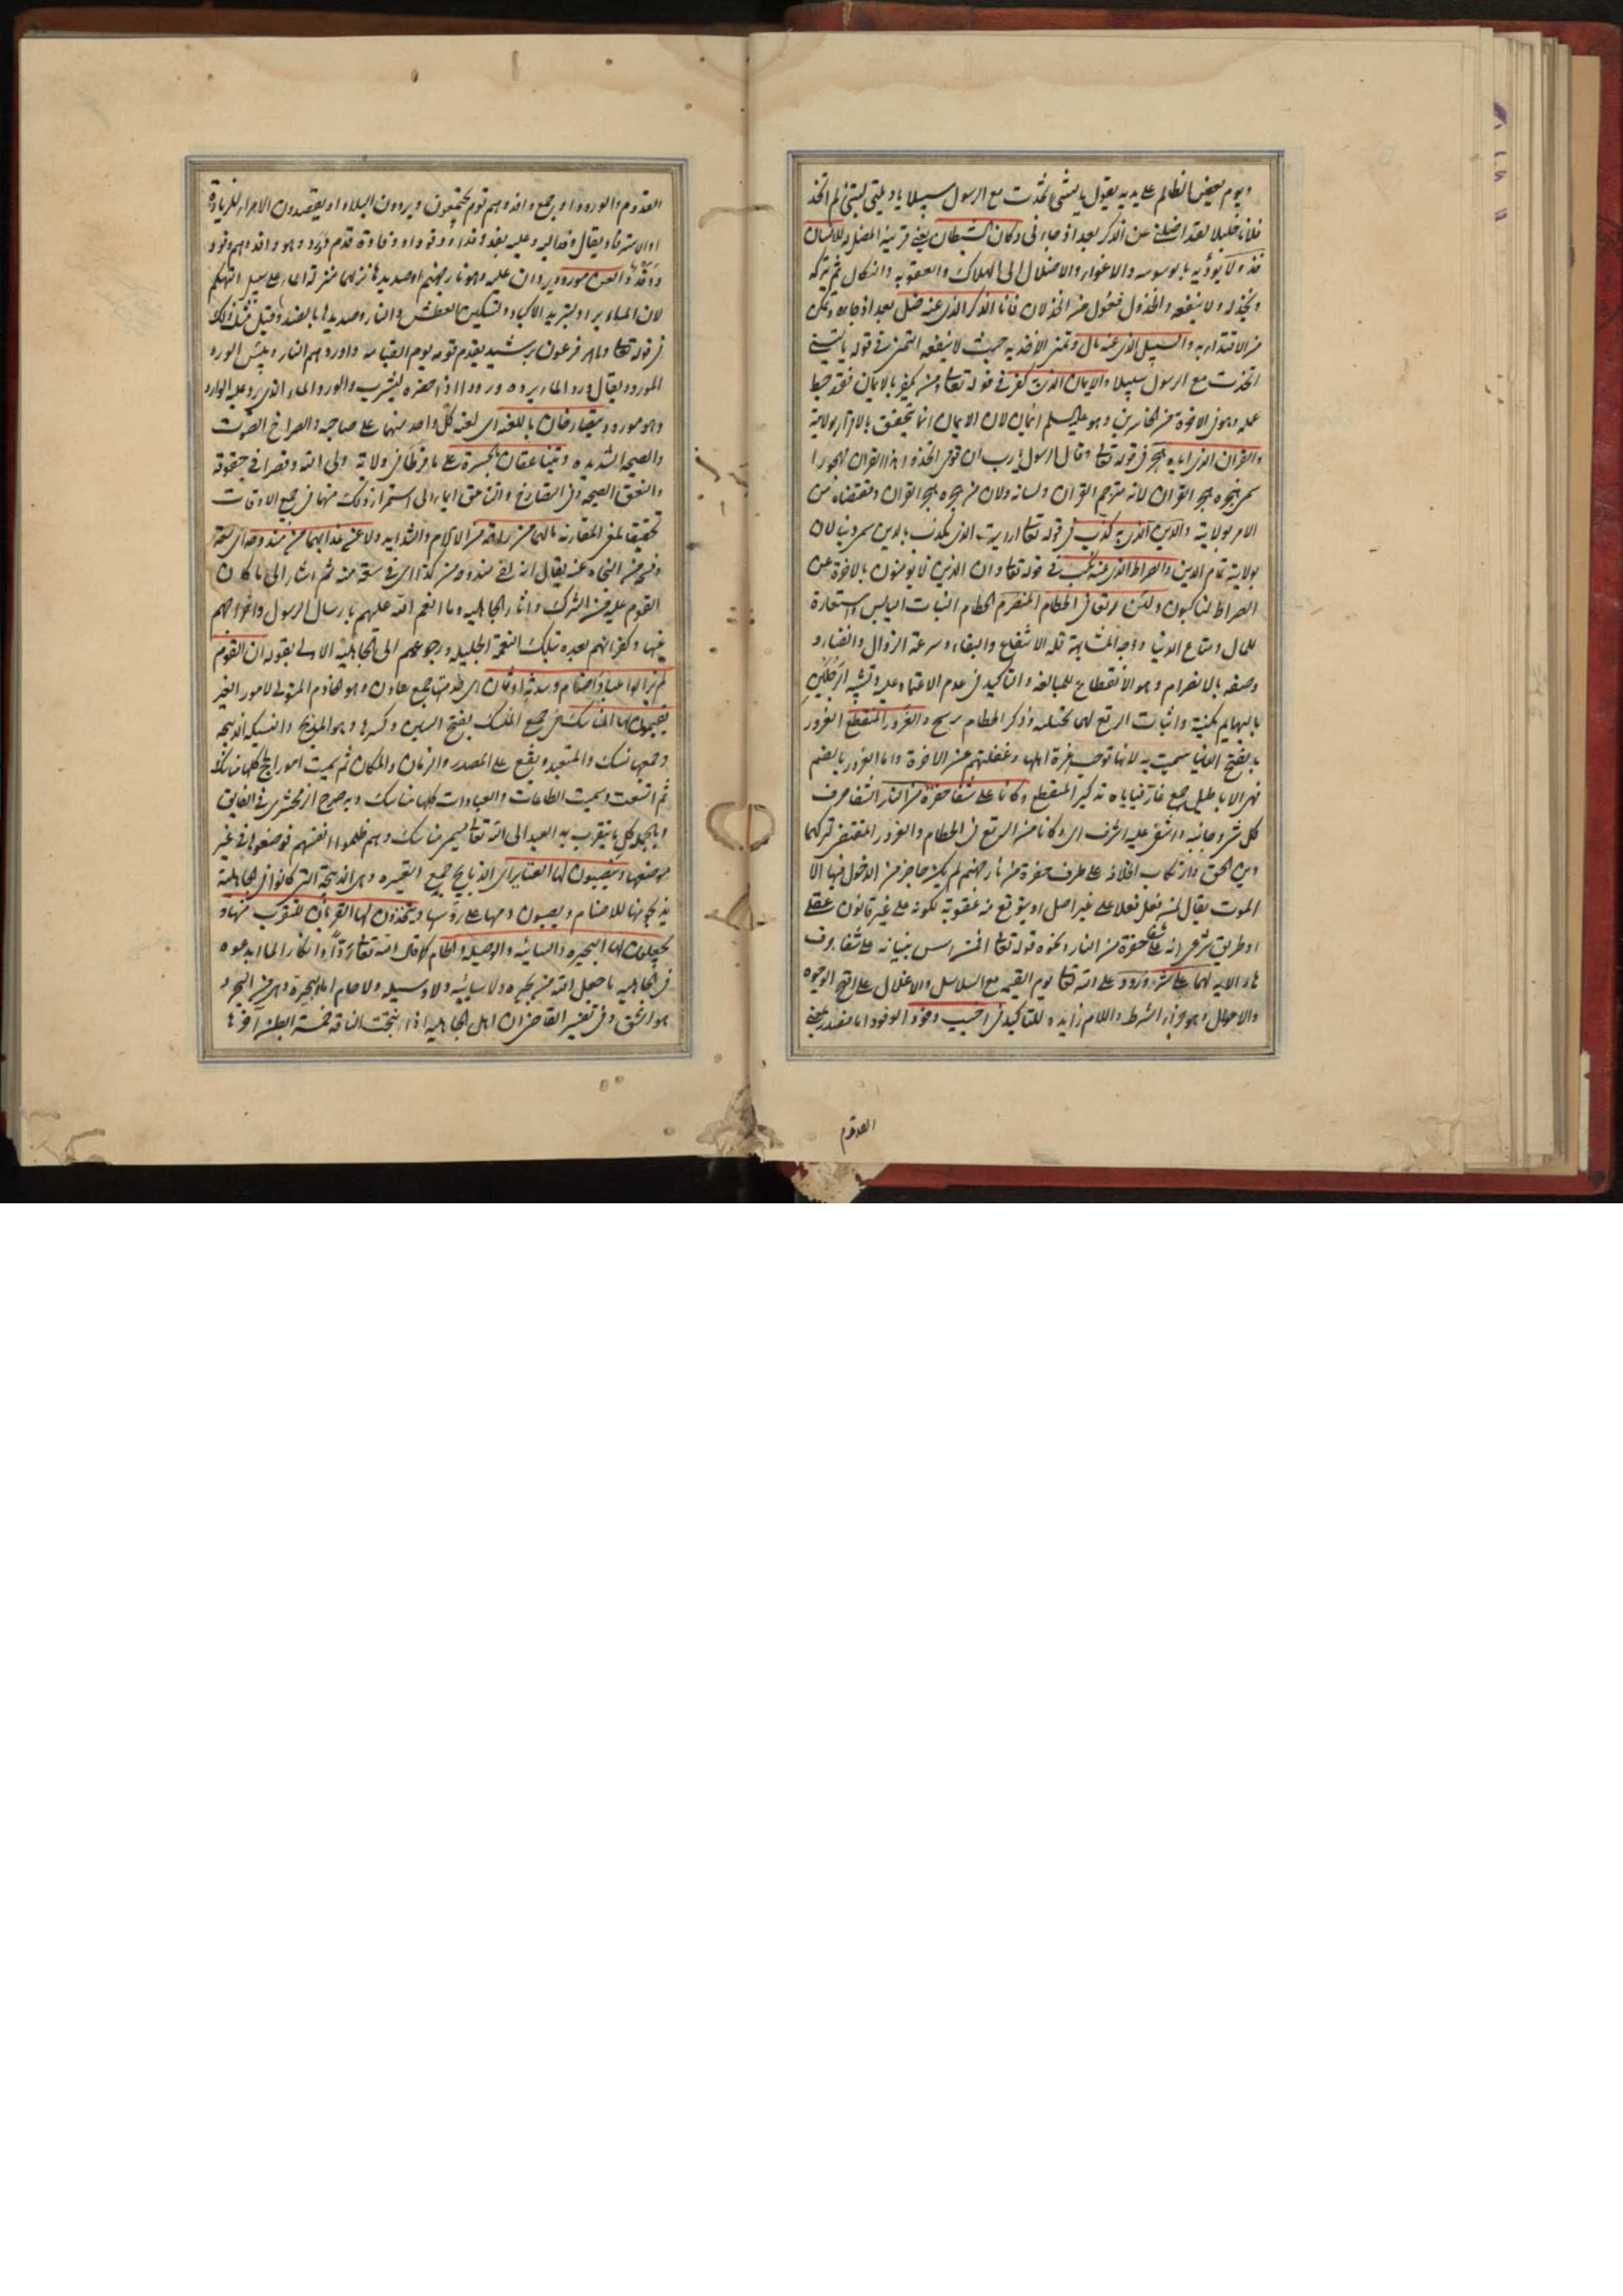 ويوم يعض الظالم على يديه يقول يا ليتني اتخذت مع الرسول سبيلا يا ويلتى ليتني لم اتخذ
فلانا خليلا لقد اضلني عن الذكر بعد اذ جاءني وكان الشيطان يعني قرينه المضل له للانسان
خذولا يؤديه بالوسوسه والاغواء والاضلال الى الهلاك والعقوبه والنكال ثم يتركه
ويخذله ولا ينفعه والخذول فعول من الخذلان فانا الذكر الذي عنه ضل بعد اذ جاءه وتمكن
من الاقتداء به والسبيل الذي عنه مال وتمنى الاخذ به حيث لا ينفعه التمني في قوله يا ليتني
اتخذت مع الرسول سبيلا والايمان الذي به كفر في قوله تعالى ومن يكفر بالايمان فقد حبط
عمله وهو في الاخرة من الخاسرين وهو عليه السلم ايمان لان الايمان انما يتحقق بالاقرار بولايته
والقران الذي اياه هجر في قوله تعالى وقال الرسول يا رب ان قومي اتخذوا هذا القران مهجورا
سمي هجره هجر القران لانه مترجم القران ولسانه ولان من هجره هجر القران ومقتضاه من
الامر بولايته والدين الذي به كذب في قوله تعالى ارايت الذي يكذب بالدين سمي دينا لان
بولايته تمام الدين والصراط الذي عنه نكب في قوله تعالى وان الذين لا يؤمنون بالاخرة عن
الصراط لناكبون ولئن رتعا في الحطام المنصرم الحطام النبات اليابس واستعارة
للمال ومتاع الدنيا ووجه المشابهة قلة الانتفاع والبقاء وسرعة الزوال والفناء و
وصفه بالانصرام وهو الانقطاع للمبالغه والتاكيد في عدم الاعتماد عليه وتشبيه الرجلين
بالبهايم مكنية واثبات الرتع لهما تخييليه وذكر الحطام ترشيح والغرور المنقطع الغرور
بالفتح الدنيا سميت به لانها توجب غرة اهلها وغفلتهم عن الاخرة واما الغرور بالضم
فهي الاباطيل جمع غار فياباه تذكير المنقطع وكانا على شفا حفرة من النار الشفا حرف
كل شيء وجانبه واشفى عليه اشرف اي وكانا من الرتع في الحطام والغرور المقتضي لتركهما
دين الحق وارتكاب خلافه على طرف حفرة من نار جهنم لم يكن حاجز من الدخول فيها الا
الموت يقال لمن فعل فعلا على غير اصل او يتوقع منه عقوبة لكونه على غير قانون عقلي
او طريق شرعي انه على شفا حفرة من النار ونحوه قوله تعالى افمن اسس بنيانه على شفا جرف
هار الايه لهما على شر ورود على الله تعالى يوم القيمه مع السلاسل والاغلال على اقبح الوجوه
والاحوال وهو جزاء الشرط واللام زايده للتاكيد في اخيب وفود الوفود اما مصدر بمعنى
القدوم
القدوم والورود او جمع وافد وهم قوم يجتمعون ويردون البلاد او يقصدون الامراء للزيارة
او الاسترفاد يقال وفد اليه وعليه يفد وفدا ووفودا ووفادة قدم وورد وهو وافد وهم وفود
ووفد والعن مورود يردان عليه وهو نار جهنم او صديدها نزلهما منزلة الماء على سبيل التهكم
لان الماء يراد لتبريد الاكباد وتسكين العطش والنار وصديدها بالضد وقيل مثل ذلك
في قوله تعالى وما امر فرعون برشيد يقدم قومه يوم القيامه فاوردهم النار وبئس الورد
المورود يقال ورد الماء يرده ورودا اذا حضره ليشرب والورد الماء الذي يرد عليه الوارد
وهو مورود يتصارخان باللعنه اي لعن كل واحد منهما على صاحبه والصراخ الصوت
والصيحه الشديده ويتناعقان بالحسرة على ما فرطا في ولاية ولي الله وقصرا في حقوقه
والنعق الصيحه وفي التصارخ والتناعق ايماء الى استمرار ذلك منهما في جميع الاوقات
تحقيقا لمعنى المقارنه مالهما من راحة من الالام والشدايد ولا عن عذابهما من مندوحه اي سعة
وفسحه من النجاه عنه يقال انه لفي مندوحه من كذا اي في سعة منه ثم اشار الى ما كان
القوم عليه من الشرك واثار الجاهليه وما انعم الله عليهم بارسال الرسول واخراجهم
عنها وكفرانهم بعده بتلك النعمة الجليله ورجوعهم الى الجاهلية الاولى بقوله ان القوم
لم يزالوا عباد اصنام وسدنة اوثان اي خدمتها جمع سادن وهو الخادم المتولي لامور الغير
يقيمون لها المناسك هي جمع المنسك بفتح السين وكسرها وهو المذبح والنسيكه الذبيحه
وجمعها نسك والمتعبد ويقع على المصدر والزمان والمكان ثم سميت امور الحج كلها مناسك
ثم اتسعت وسميت الطاعات والعبادات كلها مناسك وبه صرح الزمخشري في الفايق
وبالجمله كل ما يتقرب به العبد الى الله تعالى يسمى مناسك وهم ظلموا انفسهم فوضعوها في غير
موضعها وينصبون لها العتاير اي الذبايح جمع العتيره وهي الذبيحة التي كانوا في الجاهلية
يذبحونها للاصنام ويصبون دمها على رؤسها ويتخذون لها القربان للتقرب منها و
يجعلون لها البحيره والسائبه والوصيله والحام كما قال الله تعالى ردا وانكارا لما ابدعوه
في الجاهليه ما جعل الله من بحيره ولا سائبه ولا وسيله ولا حام اما البحيرة وهي من البحر و
هو الشق وفي تفسير القاضي ان اهل الجاهليه اذا نتجت الناقه خمسة ابطن آخرها